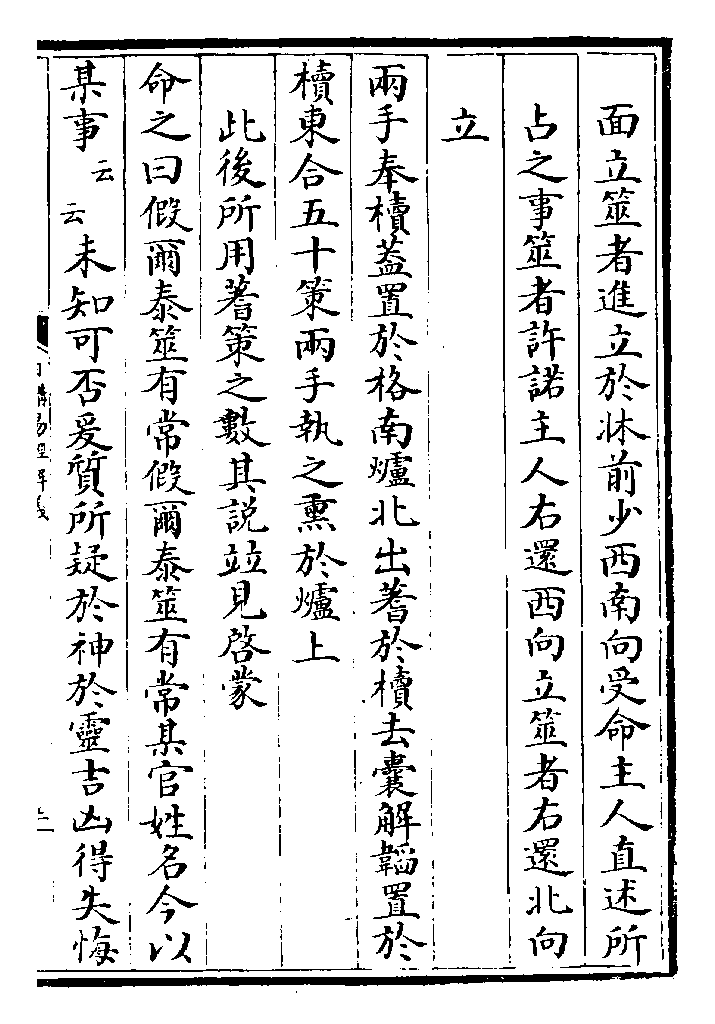 面立筮者進立於牀前少西南向受命主人直述所
占之事筮者許諾主人右還西向立筮者右還北向
立
兩手奉櫝葢置於格南爐北出蓍於櫝去囊解韜置於
櫝東合五十策兩手執之熏於爐上
此後所用蓍策之數其説竝見啓蒙
命之曰假爾泰筮有常假爾泰筮有常某官姓名今以
某事云云未知可否爰質所疑於神於靈吉凶得失悔
日講易經解義